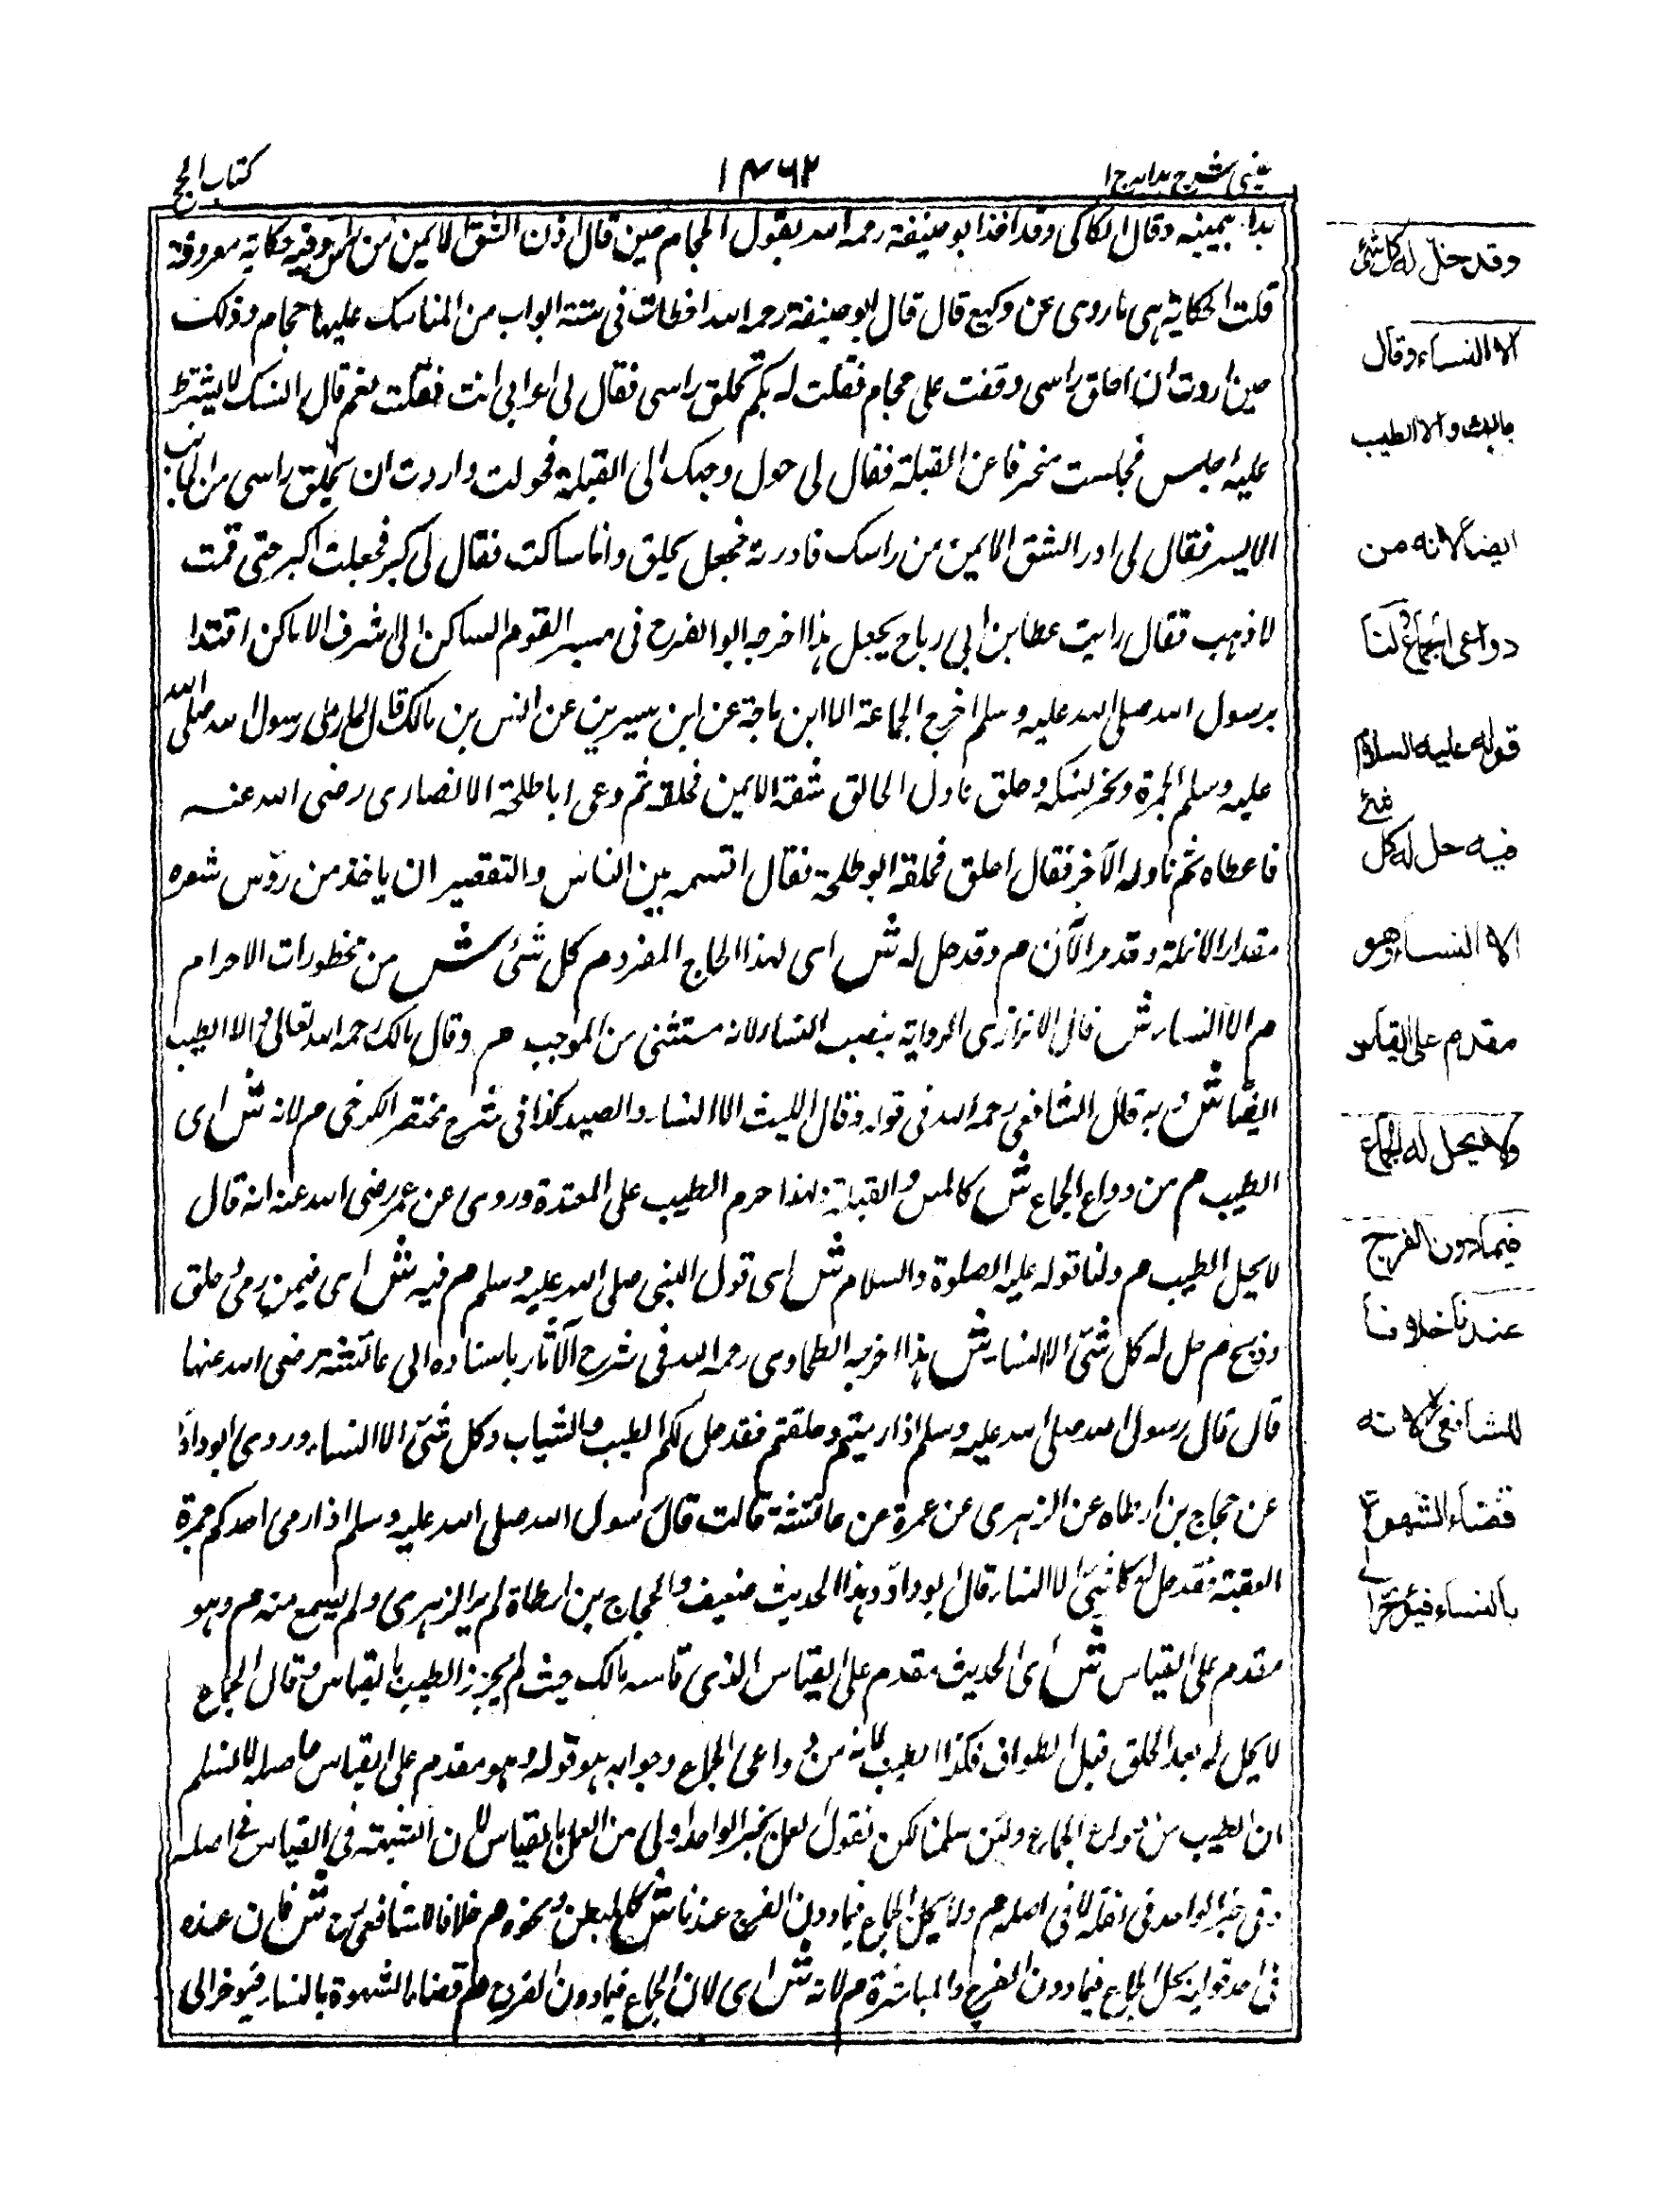 عینی شرح ہدایہ ج ۱
۱۴۶۲
کتاب الحج
بدا بیمینه وقال الکاکی وقد اخذ ابو حنیفة رحمه الله بقول الحجام حین قال اذن الشق الایمن من راسک وفیه حکایة معروفة
قلت الحکایة ہی ما روی عن وکیع قال قال ابو حنیفة رحمه الله اخطات فی ستة ابواب من المناسک علمنیہا حجام وذلک
حین اردت ان احلق راسی وقفت علی حجام فقلت له بکم تحلق راسی فقال لی اعرابی انت فقلت نعم قال النسک لا یشترط
علیه اجلس فجلست منحرفا عن القبلة فقال لی حول وجہک الی القبلة فحولت واردت ان یحلق راسی من الجانب
الایسر فقال لی ادر الشق الایمن من راسک فادرته فجعل یحلق وانا ساکت فقال لی کبر فجعلت اکبر حتی قمت
لاذہب فقال رایت عطا بن ابی رباح یجعل ہذا اخرجه ابو الفرج فی مسیر القوم الساکن الی اشرف الاماکن اقتدا
برسول الله صلی الله علیه وسلم اخرج الجماعة الا ابن ماجة عن ابن سیرین عن انس بن مالک قال لما رمی رسول الله صلی الله
علیه وسلم الجمرة ونحر نسکه وحلق ناول الحالق شقه الایمن فحلقه ثم دعی ابا طلحة الانصاری رضی الله عنه
فاعطاه ثم ناوله الآخر فقال احلق فحلقه ابو طلحة فقال اقسمه بین الناس والتقصیر ان یاخذ من رؤس شعره
مقدار الانملة وقد مر الآن م وقد حل له ش ای لہذا الحاج المفرد م کل شئ ش من محظورات الاحرام
م الا النساء ش قال الاترازی الروایة بنصب النساء لانه مستثنی من الموجب م وقال مالک رحمه الله تعالی والا الطیب
ایضا ش وبه قال الشافعی رحمه الله فی قوله وقال اللیث الا النساء والصید کذا فی شرح مختصر الکرخی م لانه ش ای
الطیب م من دواع الجماع ش کالمس والقبلة ولہذا حرم الطیب علی المعتدة وروی عن عمر رضی الله عنه انه قال
لا یحل الطیب م ولنا قوله علیه الصلوة والسلام ش ای قول النبی صلی الله علیه وسلم م فیه ش ای فیمن رمی وحلق
وذبح م حل له کل شئ الا النساء ش ہذا اخرجه الطحاوی رحمه الله فی شرح الآثار باسناده الی عائشة رضی الله عنہا
قال قال رسول الله صلی الله علیه وسلم اذا رمیتم وحلقتم فقد حل لکم الطیب والثیاب وکل شئ الا النساء وروی ابو داؤد
عن حجاج بن ارطاه عن الزہری عن عمرة عن عائشة قالت قال رسول الله صلی الله علیه وسلم اذا رمی احدکم جمرة
العقبة فقد حل له کل شئ الا النساء قال ابو داؤد وہذا الحدیث ضعیف والحجاج بن ارطاة لم یر الزہری ولم یسمع منه م وہو
مقدم علی القیاس ش ای الحدیث مقدم علی القیاس الذی قاسه مالک حیث لم یجوز الطیب بالقیاس وقال الجماع
لا یحل له بعد الحلق قبل الطواف فکذا الطیب لانه من دواعی الجماع وجوابه ہو قوله وہو مقدم علی القیاس حاصله لا نسلم
ان الطیب من دواع الجماع ولئن سلمنا لکن نقول العمل بخبر الواحد اولی من العمل بالقیاس لان الشبہة فی القیاس فی اصله
وفی خبر الواحد فی نقله لا فی اصله م ولا یحل الجماع فیما دون الفرج عندنا ش کالبطن ونحوه م خلافا للشافعی ش فان عنده
فی احد قولیه یحل الجماع فیما دون الفرج والمباشرة م لانه ش ای لان الجماع فیما دون الفرج م قضاء الشہوة بالنساء فیؤخر الی
وقد حل له کل شئ
الا النساء وقال
مالک والا الطیب
ایضا لانه من
دواعی الجماع ولنا
قوله علیه السلام
فیه حل له کل شئ
الا النساء وهو
مقدم علی القیاس
ولا یحل له الجماع
فیما دون الفرج
عندنا خلافا
للشافعی لانه
قضاء الشهوة
بالنساء فیؤخر الی